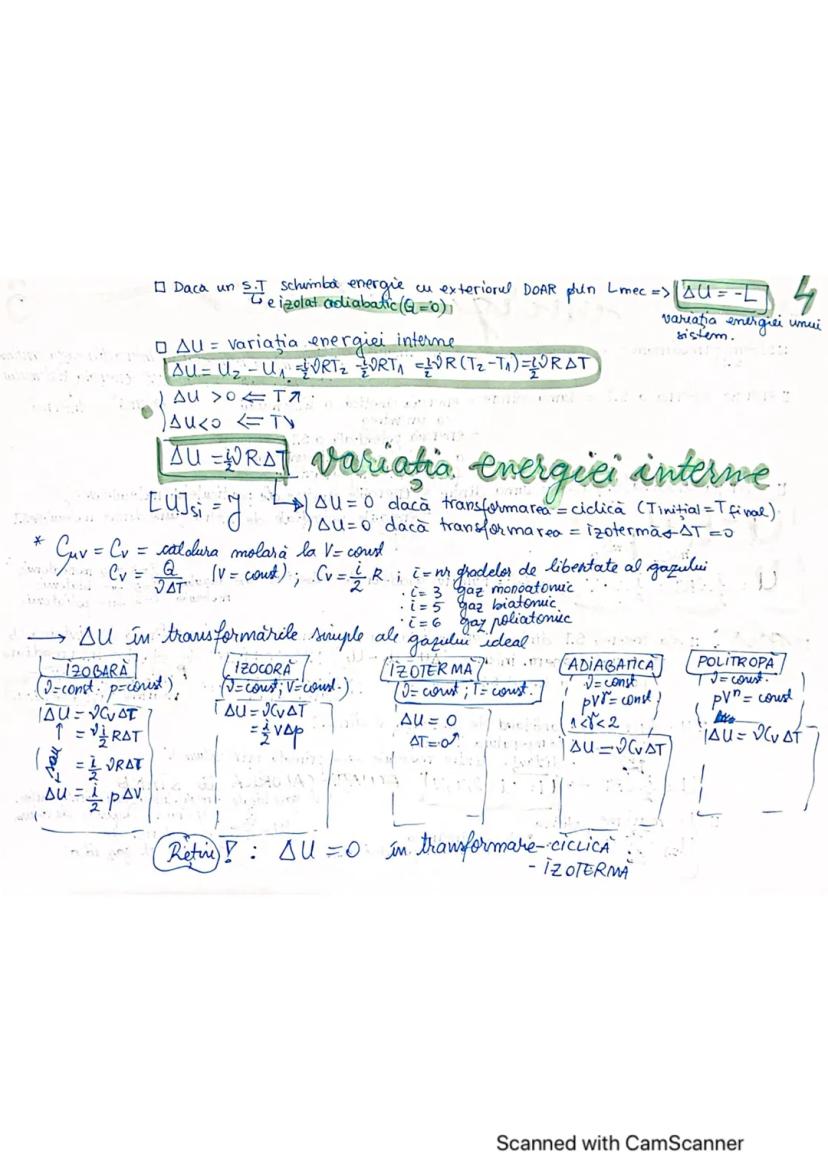 □ Daca un S.T schimbă energie cu exteriorul DOAR prin Lmec => ΔU = -L
4
↳ e izolat adiabatic (Q=0);
variația energiei unui sistem.
□ ΔU = variația energiei interne
ΔU = U₂ - U₁ = i/2 νRT₂ - i/2 νRT₁ = i/2 νR (T₂-T₁) = i/2 νRΔT
ΔU >0 ⇐ T↗
ΔU<0 ⇐ T↘
ΔU = i/2 νRΔT variația energiei interne
[U]si = J ↳ ΔU = 0 dacă transformarea = ciclică (Tinițial = Tfinal)
ΔU = 0 dacă transformarea = izotermă ΔT = 0
* Cμv = Cv = căldura molară la V = const
Cv = Q/νΔT (V = const) ; Cv = i/2 R ; i = nr gradelor de libertate al gazului
· i = 3 gaz monoatomic
· i = 5 gaz biatomic
· i = 6 gaz poliatomic
→ ΔU în transformările simple ale gazului ideal
IZOBARĂ
(ν=const; p=const)
ΔU = νCvΔT
↑ = ν i/2 RΔT
= i/2 νRΔT
ΔU = i/2 pΔV
IZOCORĂ
(ν=const; V=const.)
ΔU = νCvΔT
= i/2 VΔp
IZOTERMA
(ν = const; T= const.)
ΔU = 0
ΔT=0↗
ADIABATICĂ
ν=const
pVᵞ = const
1<γ<2
ΔU = νCvΔT
POLITROPĂ
ν=const.
pVⁿ = const
ΔU = νCvΔT
Reține ! : ΔU = 0 în transformare - CICLICĂ
- IZOTERMĂ
Scanned with CamScanner